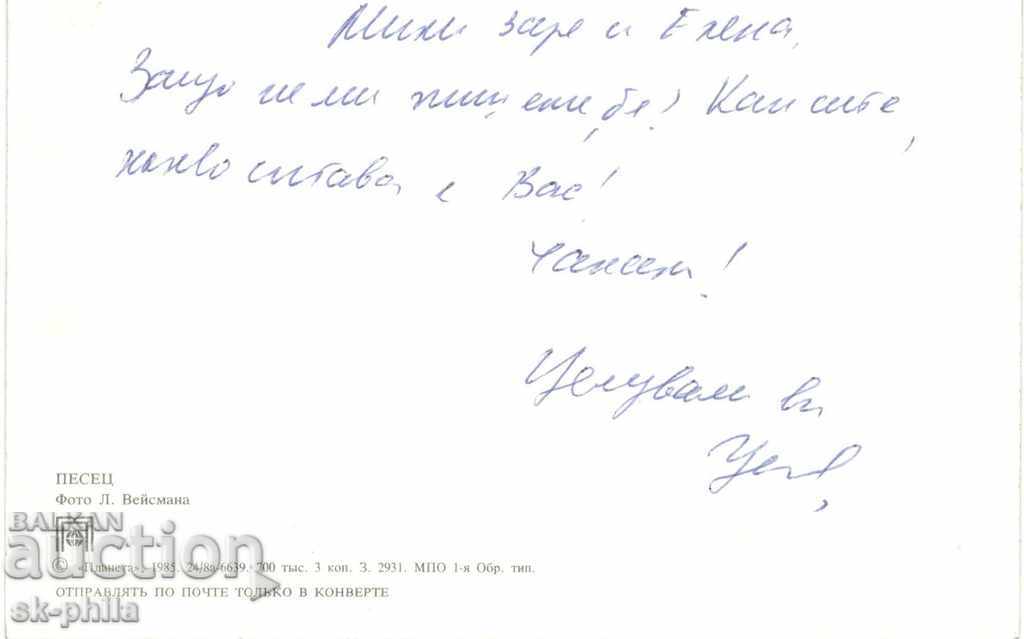 Мили Заре и Елена,
Защо не ми пишете, бе! Кажите,
какво става с Вас!
Чакам!
Целувам ви
ПЕСЕЦ
Фото Л. Вейсмана
BALKAN
auction
© «Планета», 1985. 24/8а-6639. 700 тыс. 3 коп. З. 2931. МПО 1-я Обр. тип.
ОТПРАВЛЯТЬ ПО ПОЧТЕ ТОЛЬКО В КОНВЕРТЕ
sk-phila